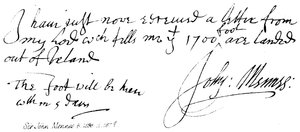 I haue just now receiued a letter from
my Lord wch tells me yt 1700 foot are landed
out of Ireland
The foot will be here
wthin 5 daies
John: Mennes:
Sir John Mennes